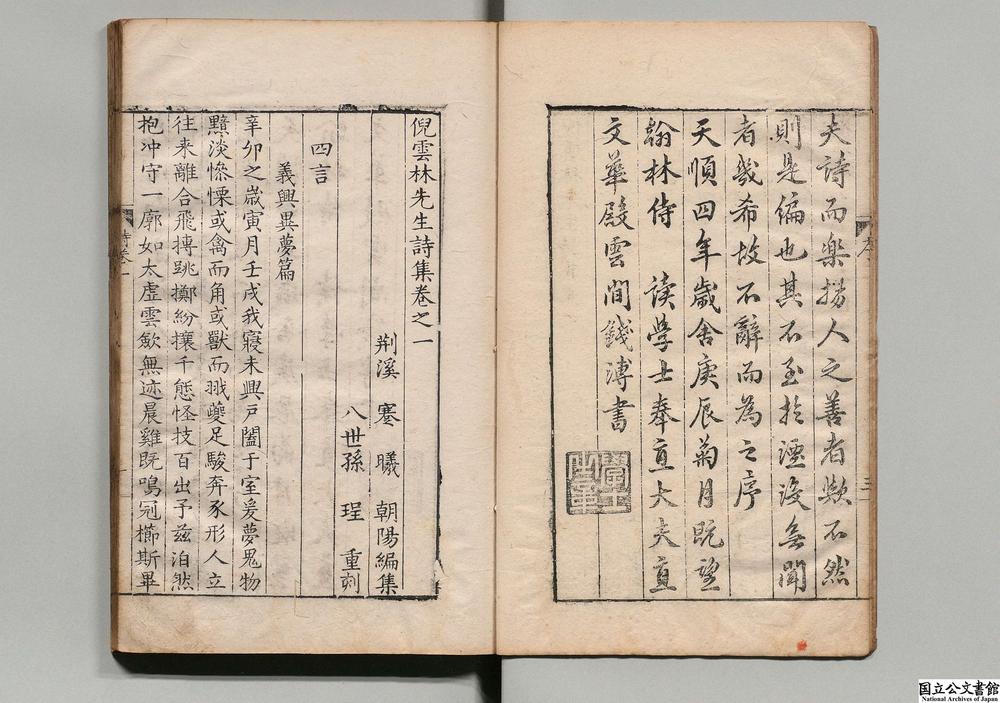 夫詩而樂揚人之善者歟不然
則是編也其不至於湮没無聞
者幾希故不辭而為之序
天順四年歲舍庚辰菊月既望
翰林侍　讀學士奉直大夫直
文華殿雲間錢溥書
倪雲林先生詩集卷之一
荆溪　蹇　曦　朝陽編集
八世孫　珵　重刻
四言
義興異夢篇
辛卯之嵗寅月壬戌我寢未興戸闔于室爰夢鬼物
黯淡慘慄或禽而角或獸而戢夔足駿奔豕形人立
往来離合飛摶跳擲紛攘千態怪技百出予兹泊然
抱冲守一廓如太虚雲歛無迹晨雞既鳴冠櫛斯畢
詩卷一
国立公文書館
National Archives of Japan